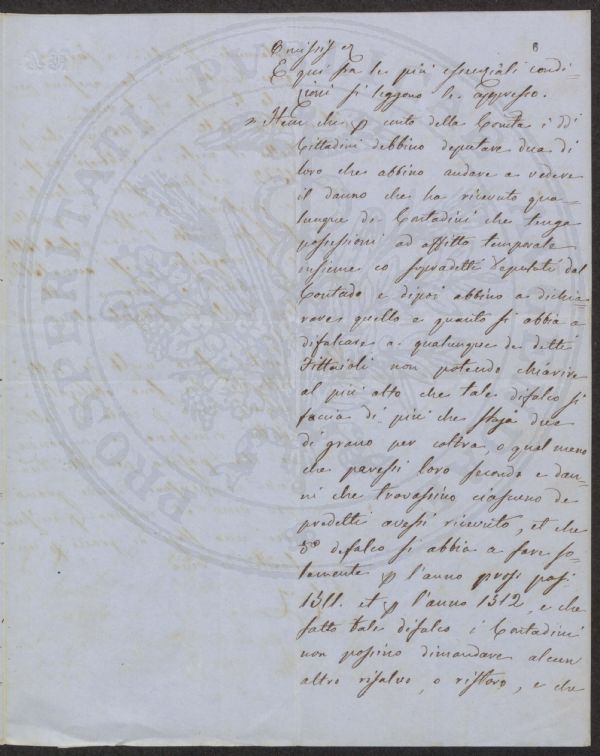 6
Omissis &
E qui fra le più essenziali condi-
zioni si leggono le appresso.
" Item che p conto della Comta i ddi
Cittadini debbino deputare dua di
loro che abbino andare a vedere
il danno che ha ricevuto qua-
lunque de Contadini che tenga
possessioni ad affitto temporale
insieme co sopradetti Deputati dal
Contado e dipoi abbino a dichia
rare quello e quanto si abbia a
difalcare a qualunque de detti
Fittaioli non potendo chiarire
al più alto che tale difalco si
faccia di più che staja dua
di grano per coltra, o qual meno
che paressi loro secondo e dan-
ni che trovassino ciascuno de
predetti avessi ricevuto, et che
do difalco si abbia a fare so-
lamente p l'anno pross pass
1511. et p l'anno 1512, e che
fatto tale difalco i Contadini
non possino dimandare alcun
altro risalvo, o ristoro, e che
PROSPERITATI PUBLICAE